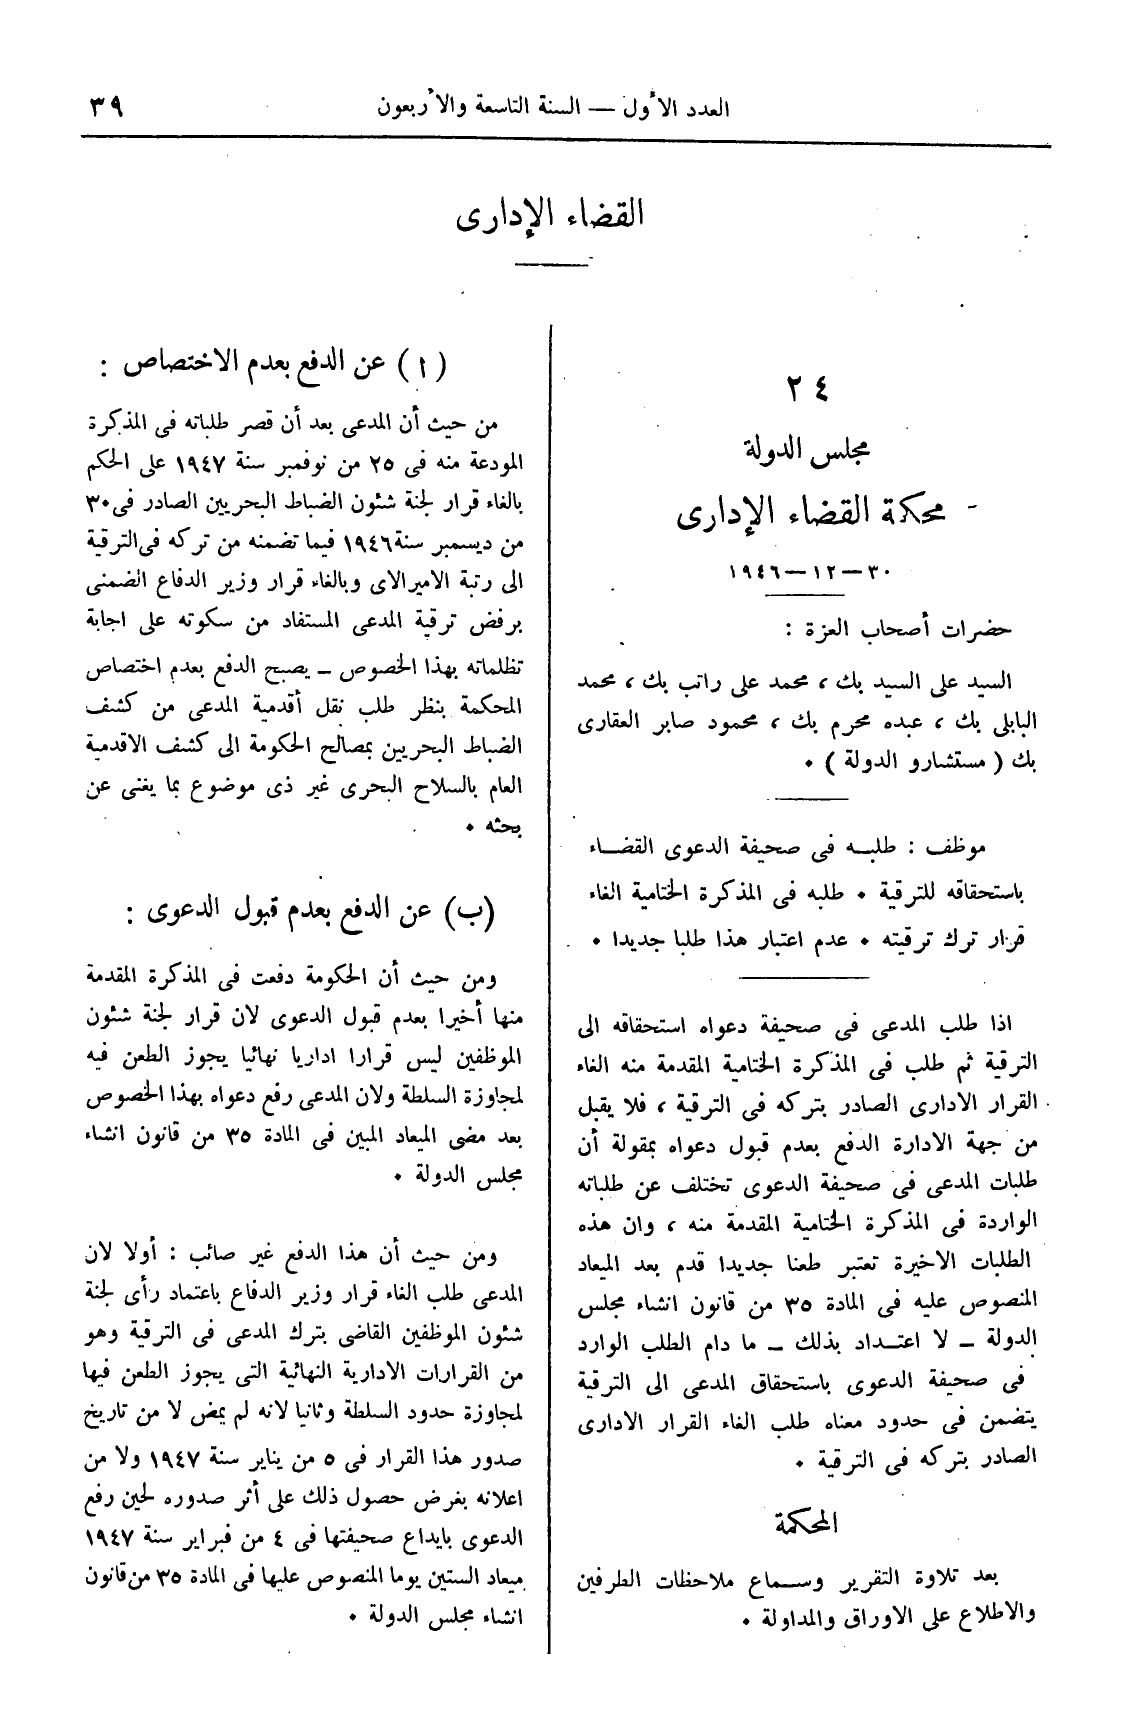 العدد الأول — السنة التاسعة والأربعون
٣٩
القضاء الإدارى
٢٤
مجلس الدولة
محكمة القضاء الإدارى
٣٠—١٢—١٩٤٦
حضرات أصحاب العزة :
السيد على السيد بك ، محمد على راتب بك ، محمد
البابلى بك ، عبده محرم بك ، محمود صابر العقارى
بك ( مستشارو الدولة ) .
موظف : طلبه فى صحيفة الدعوى القضاء
باستحقاقه للترقية . طلبه فى المذكرة الختامية الغاء
قرار ترك ترقيته . عدم اعتبار هذا طلبا جديدا .
اذا طلب المدعى فى صحيفة دعواه استحقاقه الى
الترقية ثم طلب فى المذكرة الختامية المقدمة منه الغاء
القرار الادارى الصادر بتركه فى الترقية ، فلا يقبل
من جهة الادارة الدفع بعدم قبول دعواه بمقولة أن
طلبات المدعى فى صحيفة الدعوى تختلف عن طلباته
الواردة فى المذكرة الختامية المقدمة منه ، وان هذه
الطلبات الاخيرة تعتبر طعنا جديدا قدم بعد الميعاد
المنصوص عليه فى المادة ٣٥ من قانون انشاء مجلس
الدولة — لا اعتداد بذلك — ما دام الطلب الوارد
فى صحيفة الدعوى باستحقاق المدعى الى الترقية
يتضمن فى حدود معناه طلب الغاء القرار الادارى
الصادر بتركه فى الترقية .
المحكمة
بعد تلاوة التقرير وسماع ملاحظات الطرفين
والاطلاع على الاوراق والمداولة .
( ا ) عن الدفع بعدم الاختصاص :
من حيث أن المدعى بعد أن قصر طلباته فى المذكرة
المودعة منه فى ٢٥ من نوفمبر سنة ١٩٤٧ على الحكم
بالغاء قرار لجنة شئون الضباط البحريين الصادر فى ٣٠
من ديسمبر سنة ١٩٤٦ فيما تضمنه من تركه فى الترقية
الى رتبة الاميرالاى وبالغاء قرار وزير الدفاع الضمنى
برفض ترقية المدعى المستفاد من سكوته على اجابة
تظلماته بهذا الخصوص — يصبح الدفع بعدم اختصاص
المحكمة بنظر طلب نقل أقدمية المدعى من كشف
الضباط البحريين بمصالح الحكومة الى كشف الاقدمية
العام بالسلاح البحرى غير ذى موضوع بما يغنى عن
بحثه .
(ب) عن الدفع بعدم قبول الدعوى :
ومن حيث أن الحكومة دفعت فى المذكرة المقدمة
منها أخيرا بعدم قبول الدعوى لان قرار لجنة شئون
الموظفين ليس قرارا اداريا نهائيا يجوز الطعن فيه
لمجاوزة السلطة ولان المدعى رفع دعواه بهذا الخصوص
بعد مضى الميعاد المبين فى المادة ٣٥ من قانون انشاء
مجلس الدولة .
ومن حيث أن هذا الدفع غير صائب : أولا لان
المدعى طلب الغاء قرار وزير الدفاع باعتماد رأى لجنة
شئون الموظفين القاضى بترك المدعى فى الترقية وهو
من القرارات الادارية النهائية التى يجوز الطعن فيها
لمجاوزة حدود السلطة وثانيا لانه لم يمض لا من تاريخ
صدور هذا القرار فى ٥ من يناير سنة ١٩٤٧ ولا من
اعلانه بفرض حصول ذلك على أثر صدوره لحين رفع
الدعوى بايداع صحيفتها فى ٤ من فبراير سنة ١٩٤٧
ميعاد الستين يوما المنصوص عليها فى المادة ٣٥ من قانون
انشاء مجلس الدولة .